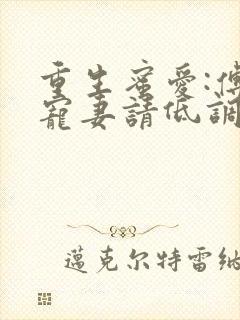 重生蜜愛:傅
寵妻請低調
邁克尔特雷納